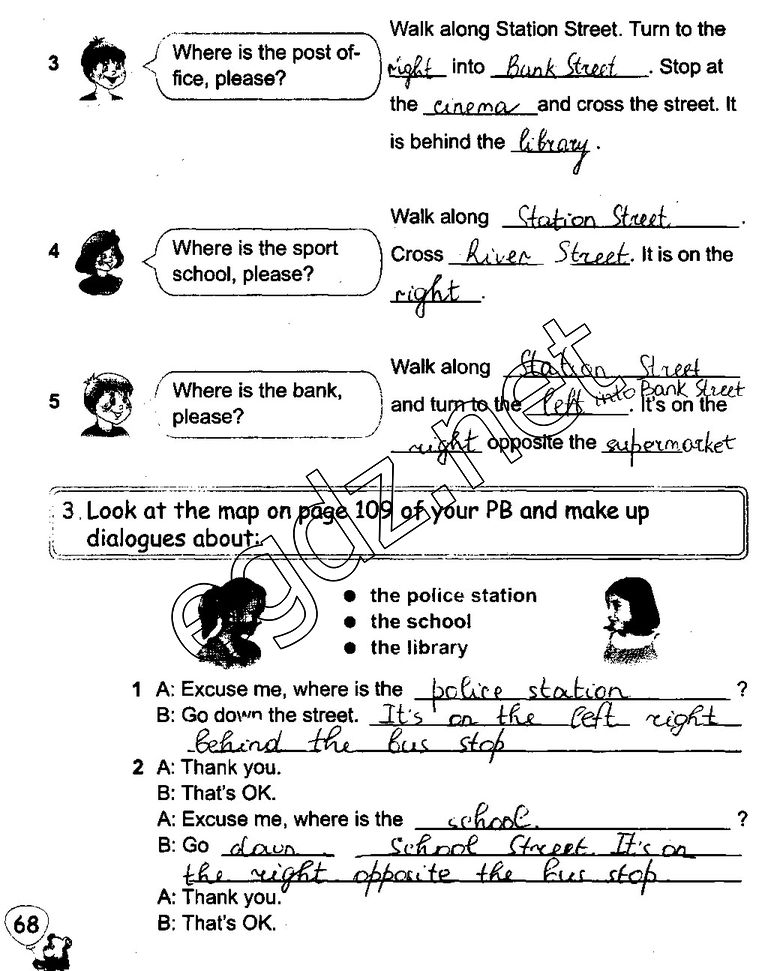 Walk along Station Street. Turn to the
3 Where is the post of-
fice, please?
right into Bank Street. Stop at
the cinema and cross the street. It
is behind the library.
Walk along Station Street.
4 Where is the sport
school, please?
Cross River Street. It is on the
right.
Walk along Station Street
5 Where is the bank,
please?
and turn to the left into Bank Street. It's on the
right opposite the supermarket
egdz.net
3. Look at the map on page 109 of your PB and make up
dialogues about:
● the police station
● the school
● the library
1 A: Excuse me, where is the police station ?
B: Go down the street. It's on the left right
behind the bus stop
2 A: Thank you.
B: That's OK.
A: Excuse me, where is the school. ?
B: Go down School Street. It's on
the right opposite the bus stop
A: Thank you.
B: That's OK.
68